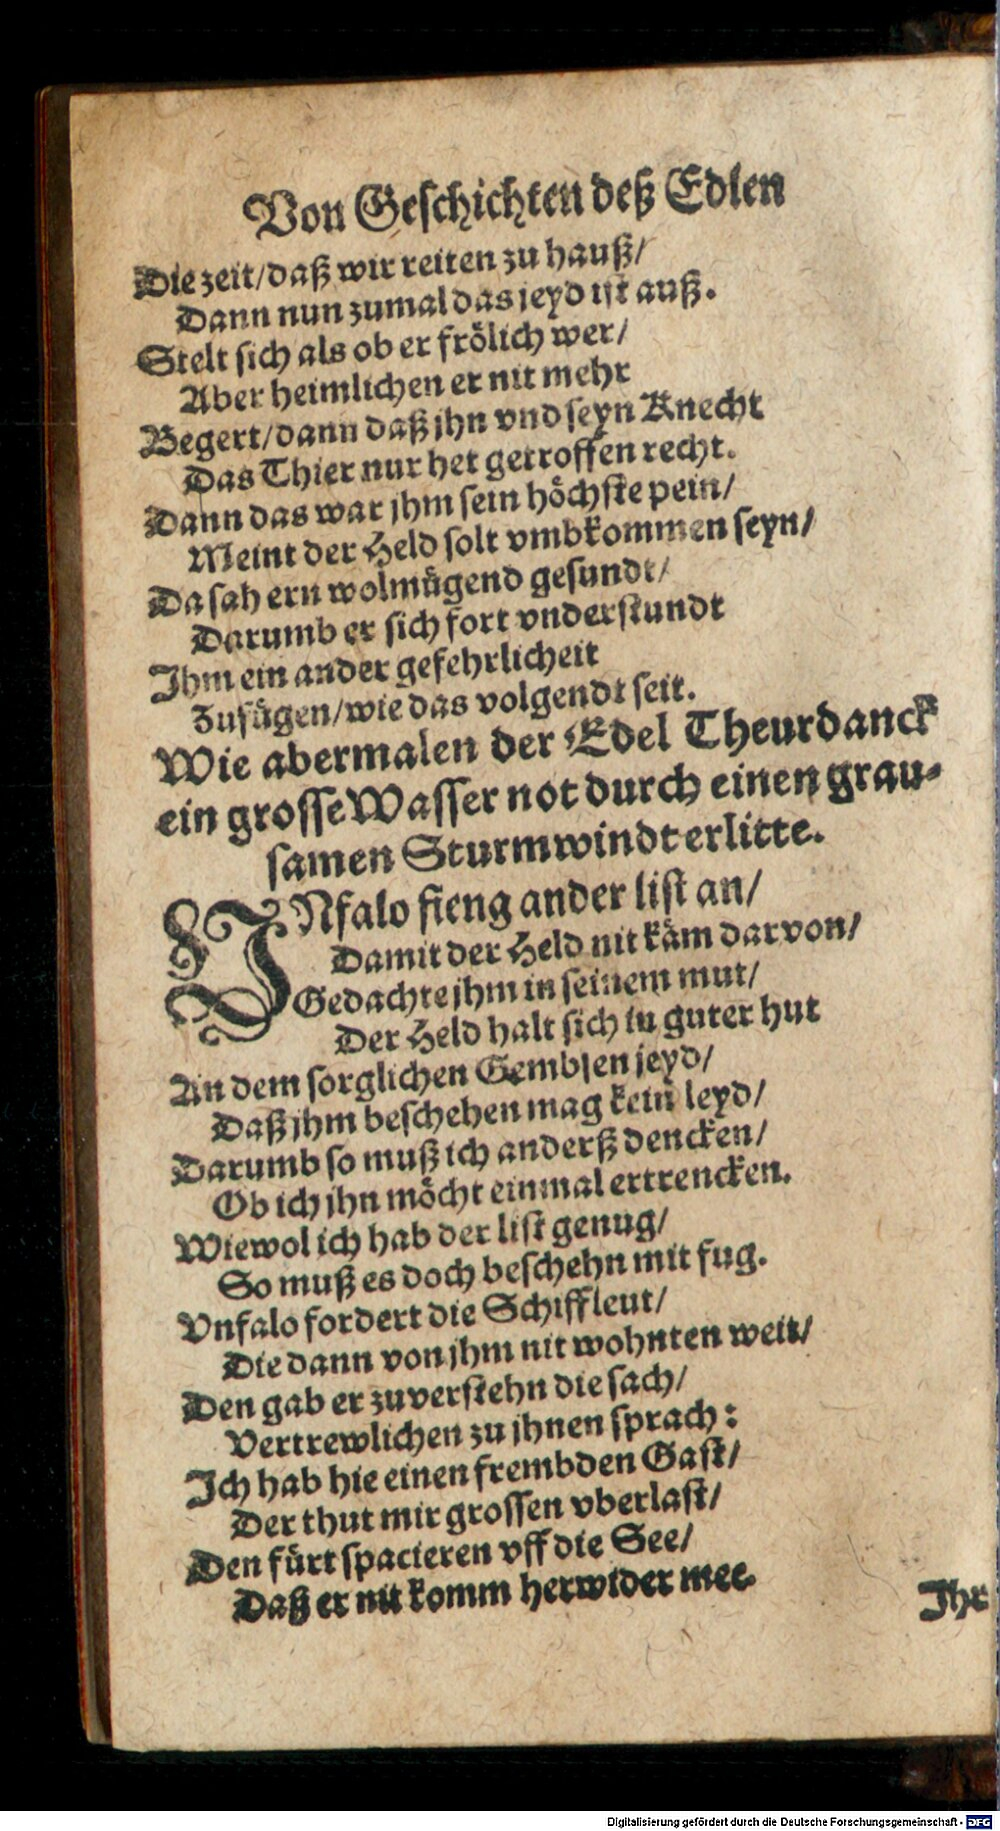 Von Geschichten deß Edlen
Die zeit/daß wir reiten zu hauß/
Dann nun zumal das jeyd ist auß.
Stelt sich als ob er frölich wer/
Aber heimlichen er nit mehr
Begert/dann daß jhn vnd seyn Knecht
Das Thier nur het getroffen recht.
Dann das war jhm sein höchste pein/
Meint der Held solt vmbkommen seyn/
Da sah ern wolmügend gesundt/
Darumb er sich fort vnderstundt
Ihm ein ander gefehrlicheit
Zufügen/wie das volgendt seit.
Wie abermalen der Edel Theurdanck
ein grosse Wasser not durch einen grau-
samen Sturmwindt erlitte.
VNfalo fieng ander list an/
Damit der Held nit käm darvon/
Gedachte jhm in seinem mut/
Der Held halt sich in guter hut
An dem sorglichen Gembsen jeyd/
Daß jhm beschehen mag kein leyd/
Darumb so muß ich anderß dencken/
Ob ich jhn möcht einmal ertrencken.
Wiewol ich hab der list genug/
So muß es doch beschehn mit fug.
Vnfalo fordert die Schiffleut/
Die dann von jhm nit wohnten weit/
Den gab er zuverstehn die sach/
Vertrewlichen zu jhnen sprach:
Ich hab hie einen frembden Gast/
Der thut mir grossen vberlast/
Den fürt spacieren vff die See/
Daß er nit komm herwider mee.
Ihr
Digitalisierung gefördert durch die Deutsche Forschungsgemeinschaft - DFG